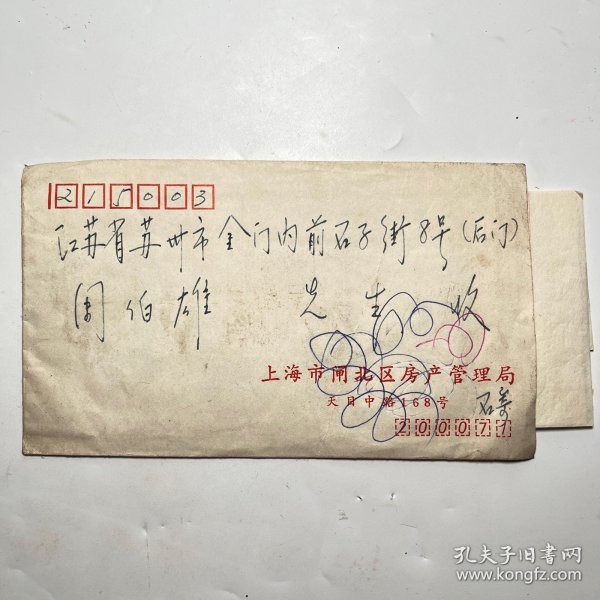 215003
江苏省苏州市金门内前石子街8号(后门)
周伯雄 先生 收
上海市闸北区房产管理局
天目中路168号
200071
孔夫子旧书网
www.kongfz.com